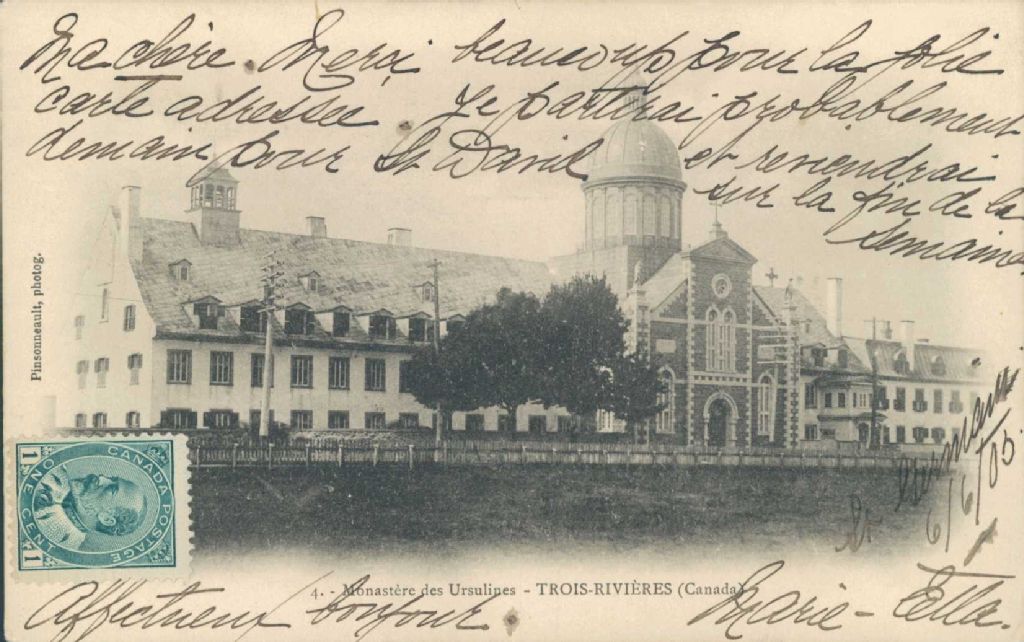 Ma chère. Merci beaucoup pour la jolie
carte adressée Je partirai probablement
demain pour St David et reviendrai
sur la fin de la
semaine
Pinsonneault, photog.
6/6/05
CANADA POSTAGE
ONE CENT
1 1
4. - Monastère des Ursulines - TROIS-RIVIÈRES (Canada)
Affectueux bonjour Marie-Etta.